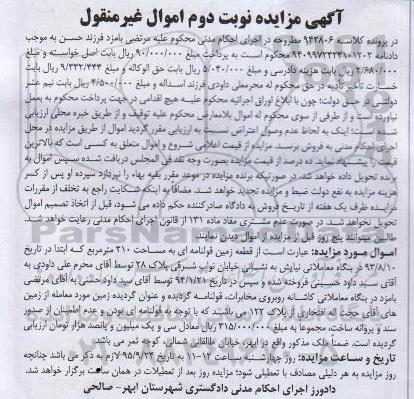 آگهی مزایده نوبت دوم اموال غیرمنقول
در پرونده کلاسه ۹۴۲۸۰۶ مطروحه در اجرای احکام مدنی محکوم علیه مرتضی بامزد فرزند حسن به موجب
دادنامه ۹۴۰۹۹۷۲۴۲۴۱۰۱۲۰۳ محکوم است به پرداخت مبلغ ۹۰/۰۰۰/۰۰۰ ریال بابت اصل خواسته و مبلغ
۲/۶۸۰/۰۰۰ ریال بابت هزینه دادرسی و مبلغ ۵/۰۴۰/۰۰۰ ریال بابت حق الوکاله و مبلغ ۹/۳۳۲/۴۴۴ ریال بابت
خسارت تأخیر تأدیه در حق محکوم له محرمعلی داودی فرزند اسداله و مبلغ ۴/۵۰۰/۰۰۰ ریال بابت نیم عشر
دولتی در حق دولت؛ چون با ابلاغ اوراق اجرائیه محکوم علیه هیچ اقدامی در جهت پرداخت محکوم به بعمل
نیاورده است و از طرفی از سوی محکوم له اموال بلامعارض محکوم علیه توقیف و از طریق خبره محلی ارزیابی
شده است؛ اینک به لحاظ عدم وصول اعتراض نسبت به ارزیابی مقرر گردید اموال از طریق مزایده در محل
اجرای احکام مدنی به فروش برسد. مزایده از قیمت اعلامی شروع و اموال متعلق به کسی است که بالاترین
قیمت را پیشنهاد نماید. ده درصد از قیمت مزایده بصورت وجه نقد فی المجلس دریافت شده سپس اموال به
برنده تحویل داده خواهد شد. در صورتیکه برنده مزایده در موعد مقرر بقیه بهاء را نپردازد سپرده او پس از کسر
هزینه مزایده به نفع دولت ضبط و مزایده تجدید خواهد شد. مضافاً به اینکه شکایت راجع به تخلف از مقررات
مزایده ظرف یک هفته از تاریخ فروش به دادگاه صادرکننده حکم داده می شود، قبل از اتخاذ تصمیم اموال
تحویل نخواهد شد. در صورت عدم مشتری مفاد ماده ۱۳۱ از قانون اجرای احکام مدنی رعایت خواهد شد.
طالبین میتوانند پنج روز قبل از مزایده از اموال دیدن نمایند.
اموال مورد مزایده: عبارت است از قطعه زمین قولنامه ای به مساحت ۲۱۰ مترمربع که ابتدا در تاریخ
۹۳/۸/۱۰ در بنگاه معاملاتی نیایش به نشانی خیابان نواب شرقی پلاک ۲۸ توسط آقای محرم علی داودی به
آقای سید داود حسینی فروخته شده و سپس در تاریخ ۹۴/۱/۲۱ توسط آقای سید داود حسنی به آقای مرتضی
بامزد در بنگاه معاملاتی کاشانه روبروی مخابرات، قولنامه گردیده و عنوان گردیده زمین مورد معامله از زمین
های آقای حجت اله افتخاری از پلاک ۱۰۲۲ می باشد که با توجه به قولنامه ای بودن و عدم اطمینان از صدور
سند و پروانه ساخت، مجموعاً به مبلغ ۳۱۵/۰۰۰/۰۰۰ ریال معادل سی و یک میلیون و پانصد هزار تومان ارزیابی
گردیده است. ضمنا ملک مذکور واقع در ابهر، خیابان طالقانی شمالی، کوچه ثمر می باشد.
تاریخ و ساعت مزایده: روز چهارشنبه، ساعت ۱۲-۱۱ به تاریخ ۹۵/۹/۲۴ لازم به ذکر می باشد چنانچه
روز مزایده به هر دلیلی مصادف با تعطیلی شود؛ مزایده روز بعد از تعطیلات در همان ساعت برگزار خواهد شد.
دادورز اجرای احکام مدنی دادگستری شهرستان ابهر- صالحی